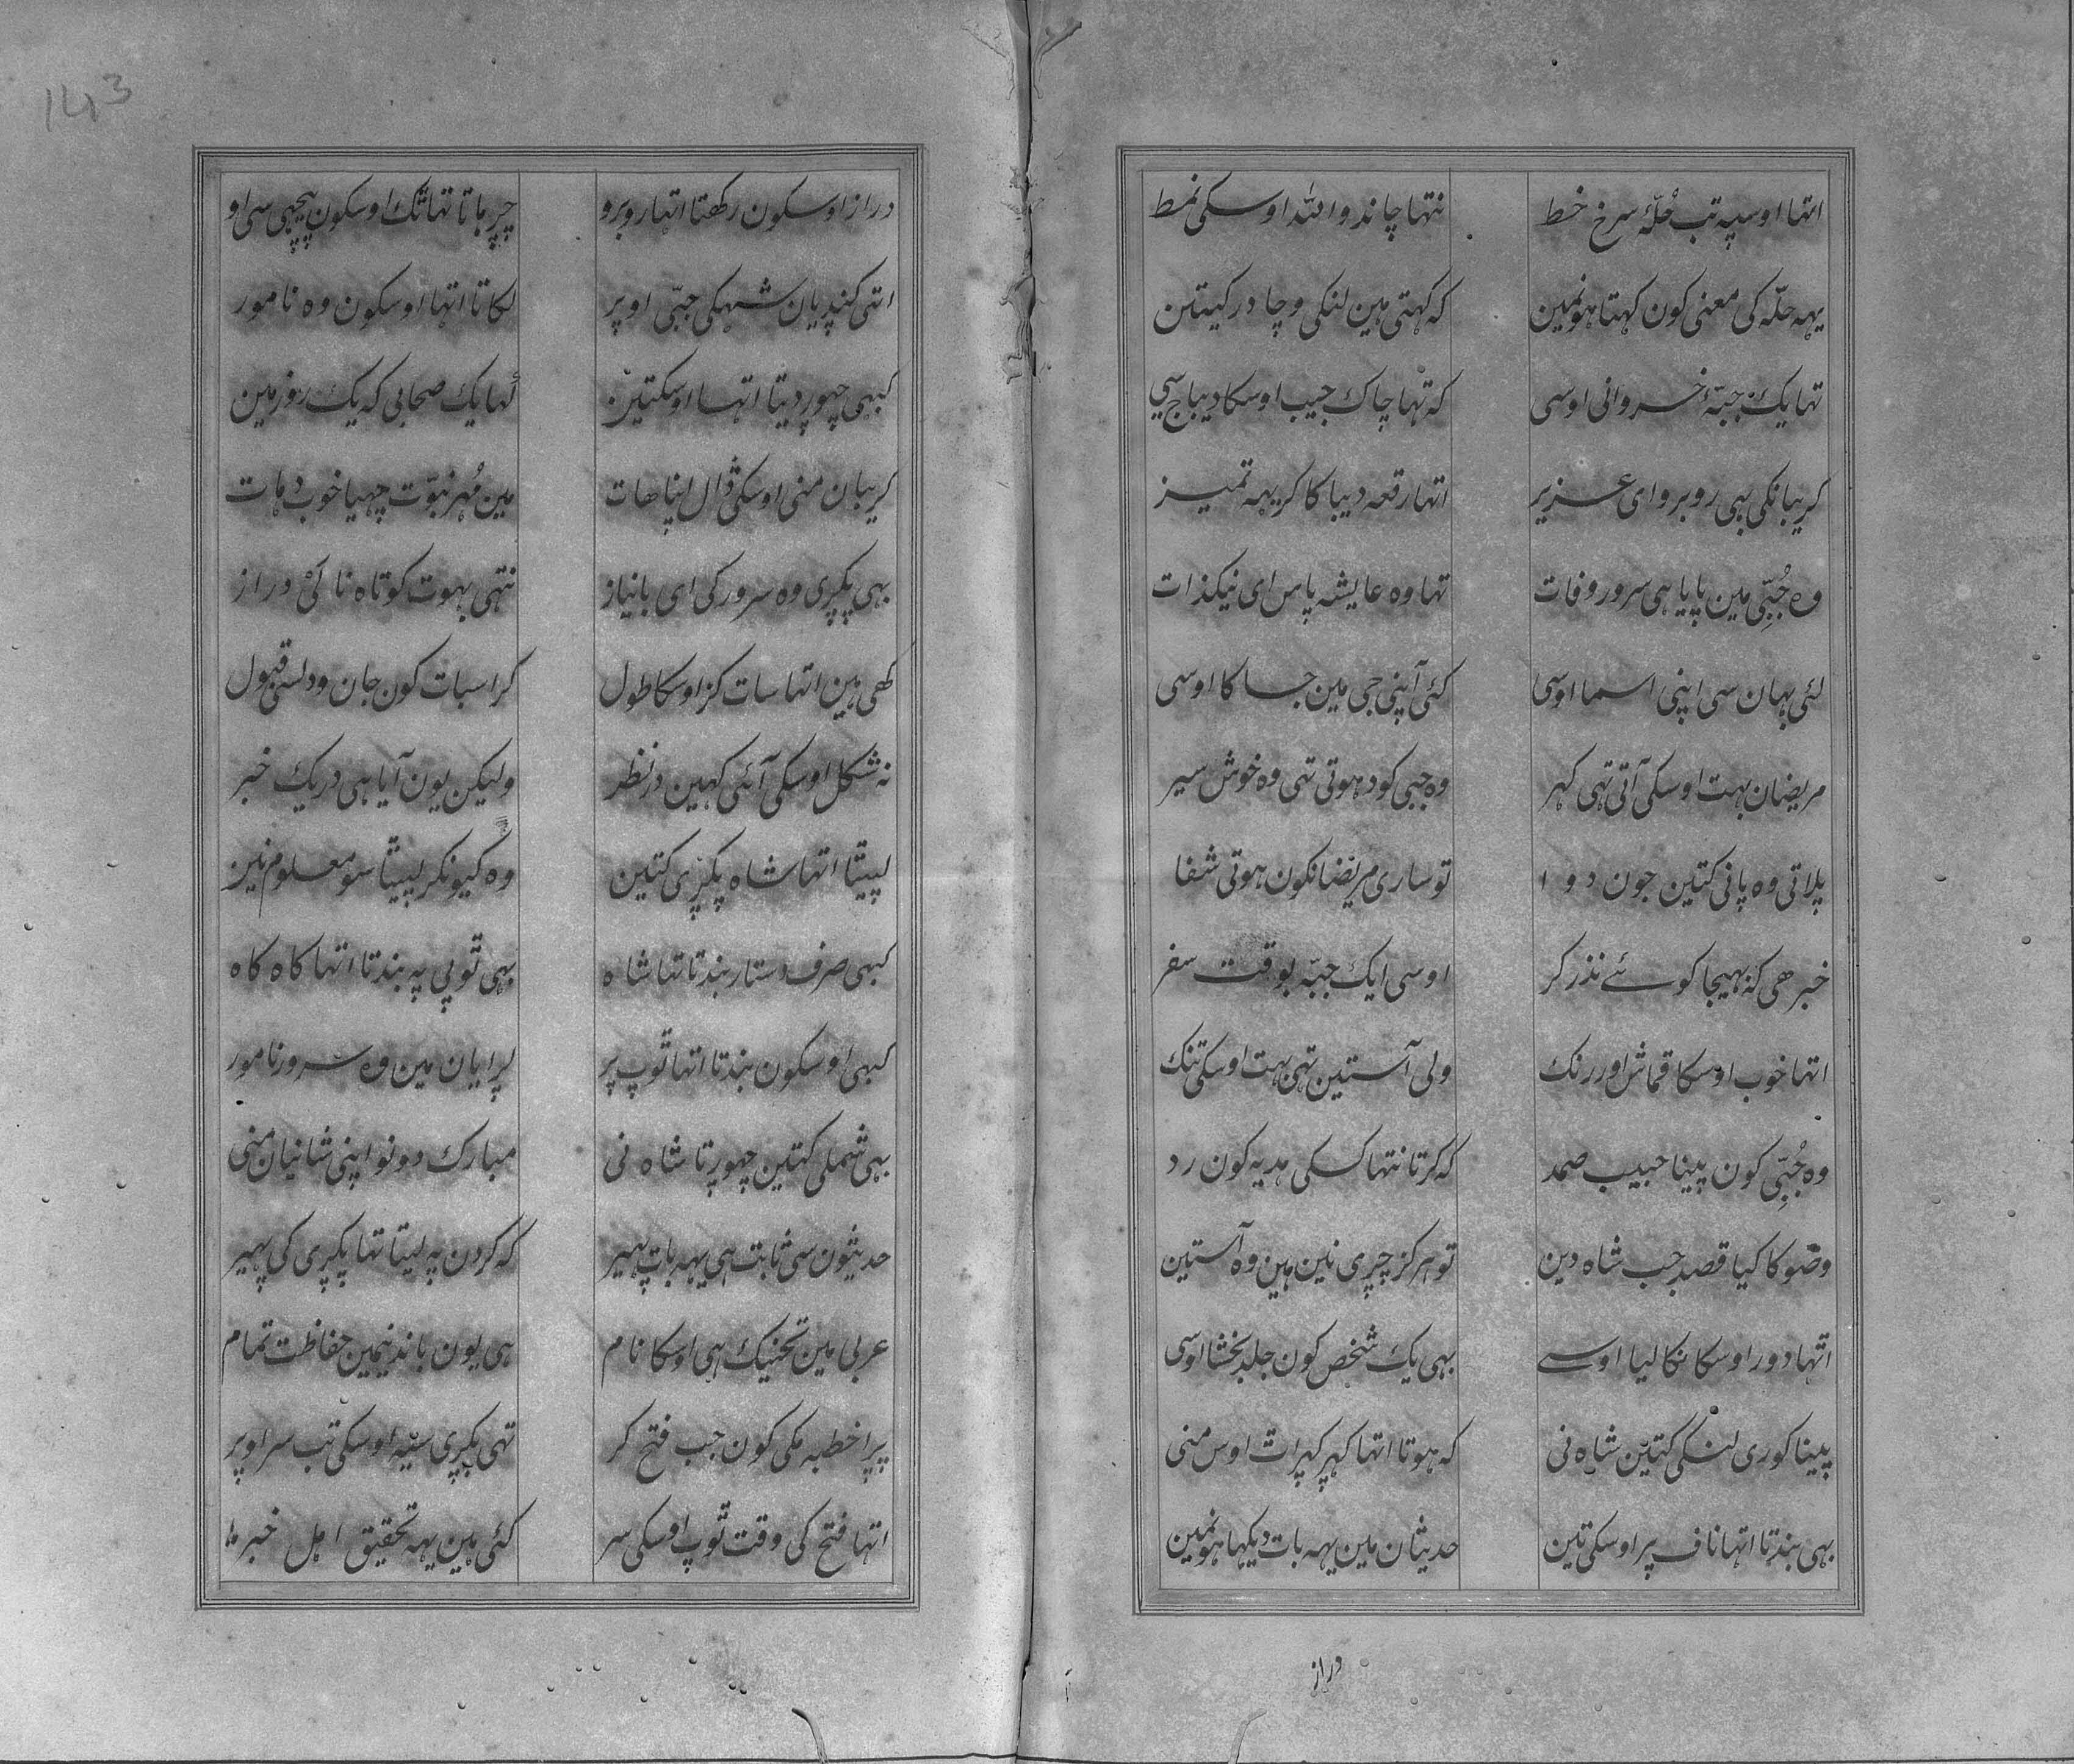 اتہا اوسپہ تب حُلّۂ سرخ خط نتہا چاند واللہ اوسکی نمط
یہہ حلّہ کی معنی کون کہتا ہونمین کہ کہتی ہین لنکی وچادر کیتن
تہا یک جبّۂ خسروانی اوسی کہ تہا چاک جیب اوسکا دیباج سی
کریبانکی بہی روبرو ای عزیر اتہا رقعہ دیبا کا کر یہہ تمیز
وہ جُبّی مین پایا ہی سرور وفات تہا وہ عایشہ پاس ای نیکذات
لئی بہان سی اپنی اسما اوسی کئی آپنی جی مین جساکا اوسی
مریضان بہت اوسکی آتی تہی کہر وہ جبی کو دہوتی تہی وہ خوش سیر
پلاتی وہ پانی کتین جون دوا تو ساری مریضانکون ہوتی شفا
خبر ھی کہ بہیجا کوئے نذر کر اوسی ایک جبّہ بوقت سفر
اتہا خوب اوسکا قماش اور رنک ولی آستین تہی بہت اوسکی تنک
وہ جُبّی کون پینا حبیب صمد کہ کرتا نتہا کسکی ہدیہ کون رد
وضو کا کیا قصد جب شاہ دین تو ہرکز چرپری نین ہین وہ آستین
اتہا دور اوسکا نکالیا اوسے بہی یک شخص کون جلد بخشا اوسی
پینا کوری لنکی کتین شاہ نی کہ ہوتا اتہا کہر کہرات اوس منی
بہی بندتا اتہا ناف پر اوسکی تین حدیثان مین یہہ بات دیکہا ہونمین
دراز
دراز اوسکون رکھتا اتہا روبرو چرپاتا تہا تک اوسکون پیچہی سی او
اتی کنڈیان شہکی جبّی اوپر لکاتا اتہا اوسکون وہ نامور
کبہی چہوڑ دیتا اتہا اوسکتین کہا یک صحابی کہ یک روز مین
کریبان منی اوسکی ڈال اپنا ھات مین مُہر نبوّت چہیا خوب دھات
بہی پکڑی وہ سرور کی ای بانیاز نتہی بہوت کوتاہ ناکئی دراز
کھی ہین اتہا سات کز اوسکا طول کر اسبات کون جان ودلسی قبول
نہ شکل اوسکی آئی کہین در نظر ولیکن یون آیا ہی در یک خبر
لپیٹا اتہا شاہ پکڑی کتین وہ کیونکر لپیٹا سو معلوم نین
کبہی صرف دستار بندتا تہا شاہ بہی ٹوپی پہ بندتا اتہا کاہ کاہ
کبہی اوسکون بندتا اتہا ٹوپ پر لڑایان مین وہ سرور نامور
بہی شملی کتین چہوڑتا شاہ نی مبارک دونو اپنی شانیان منی
حدیثون سی ثابت ہی یہہ بات پہیر کہ کردن پہ لیتا تہا پکڑی کی پہیر
عربی مین تحنیک ہی اوسکا نام ہی یون باندنیمین حفاظت تمام
پڑا خطبہ مکی کون جب فتح کر تہی پکڑی سیہ اوسکی تب سر اوپر
اتہا فتح کی وقت ٹوپ اوسکی سر کئی ہین یہہ تحقیق اہل خبر
143